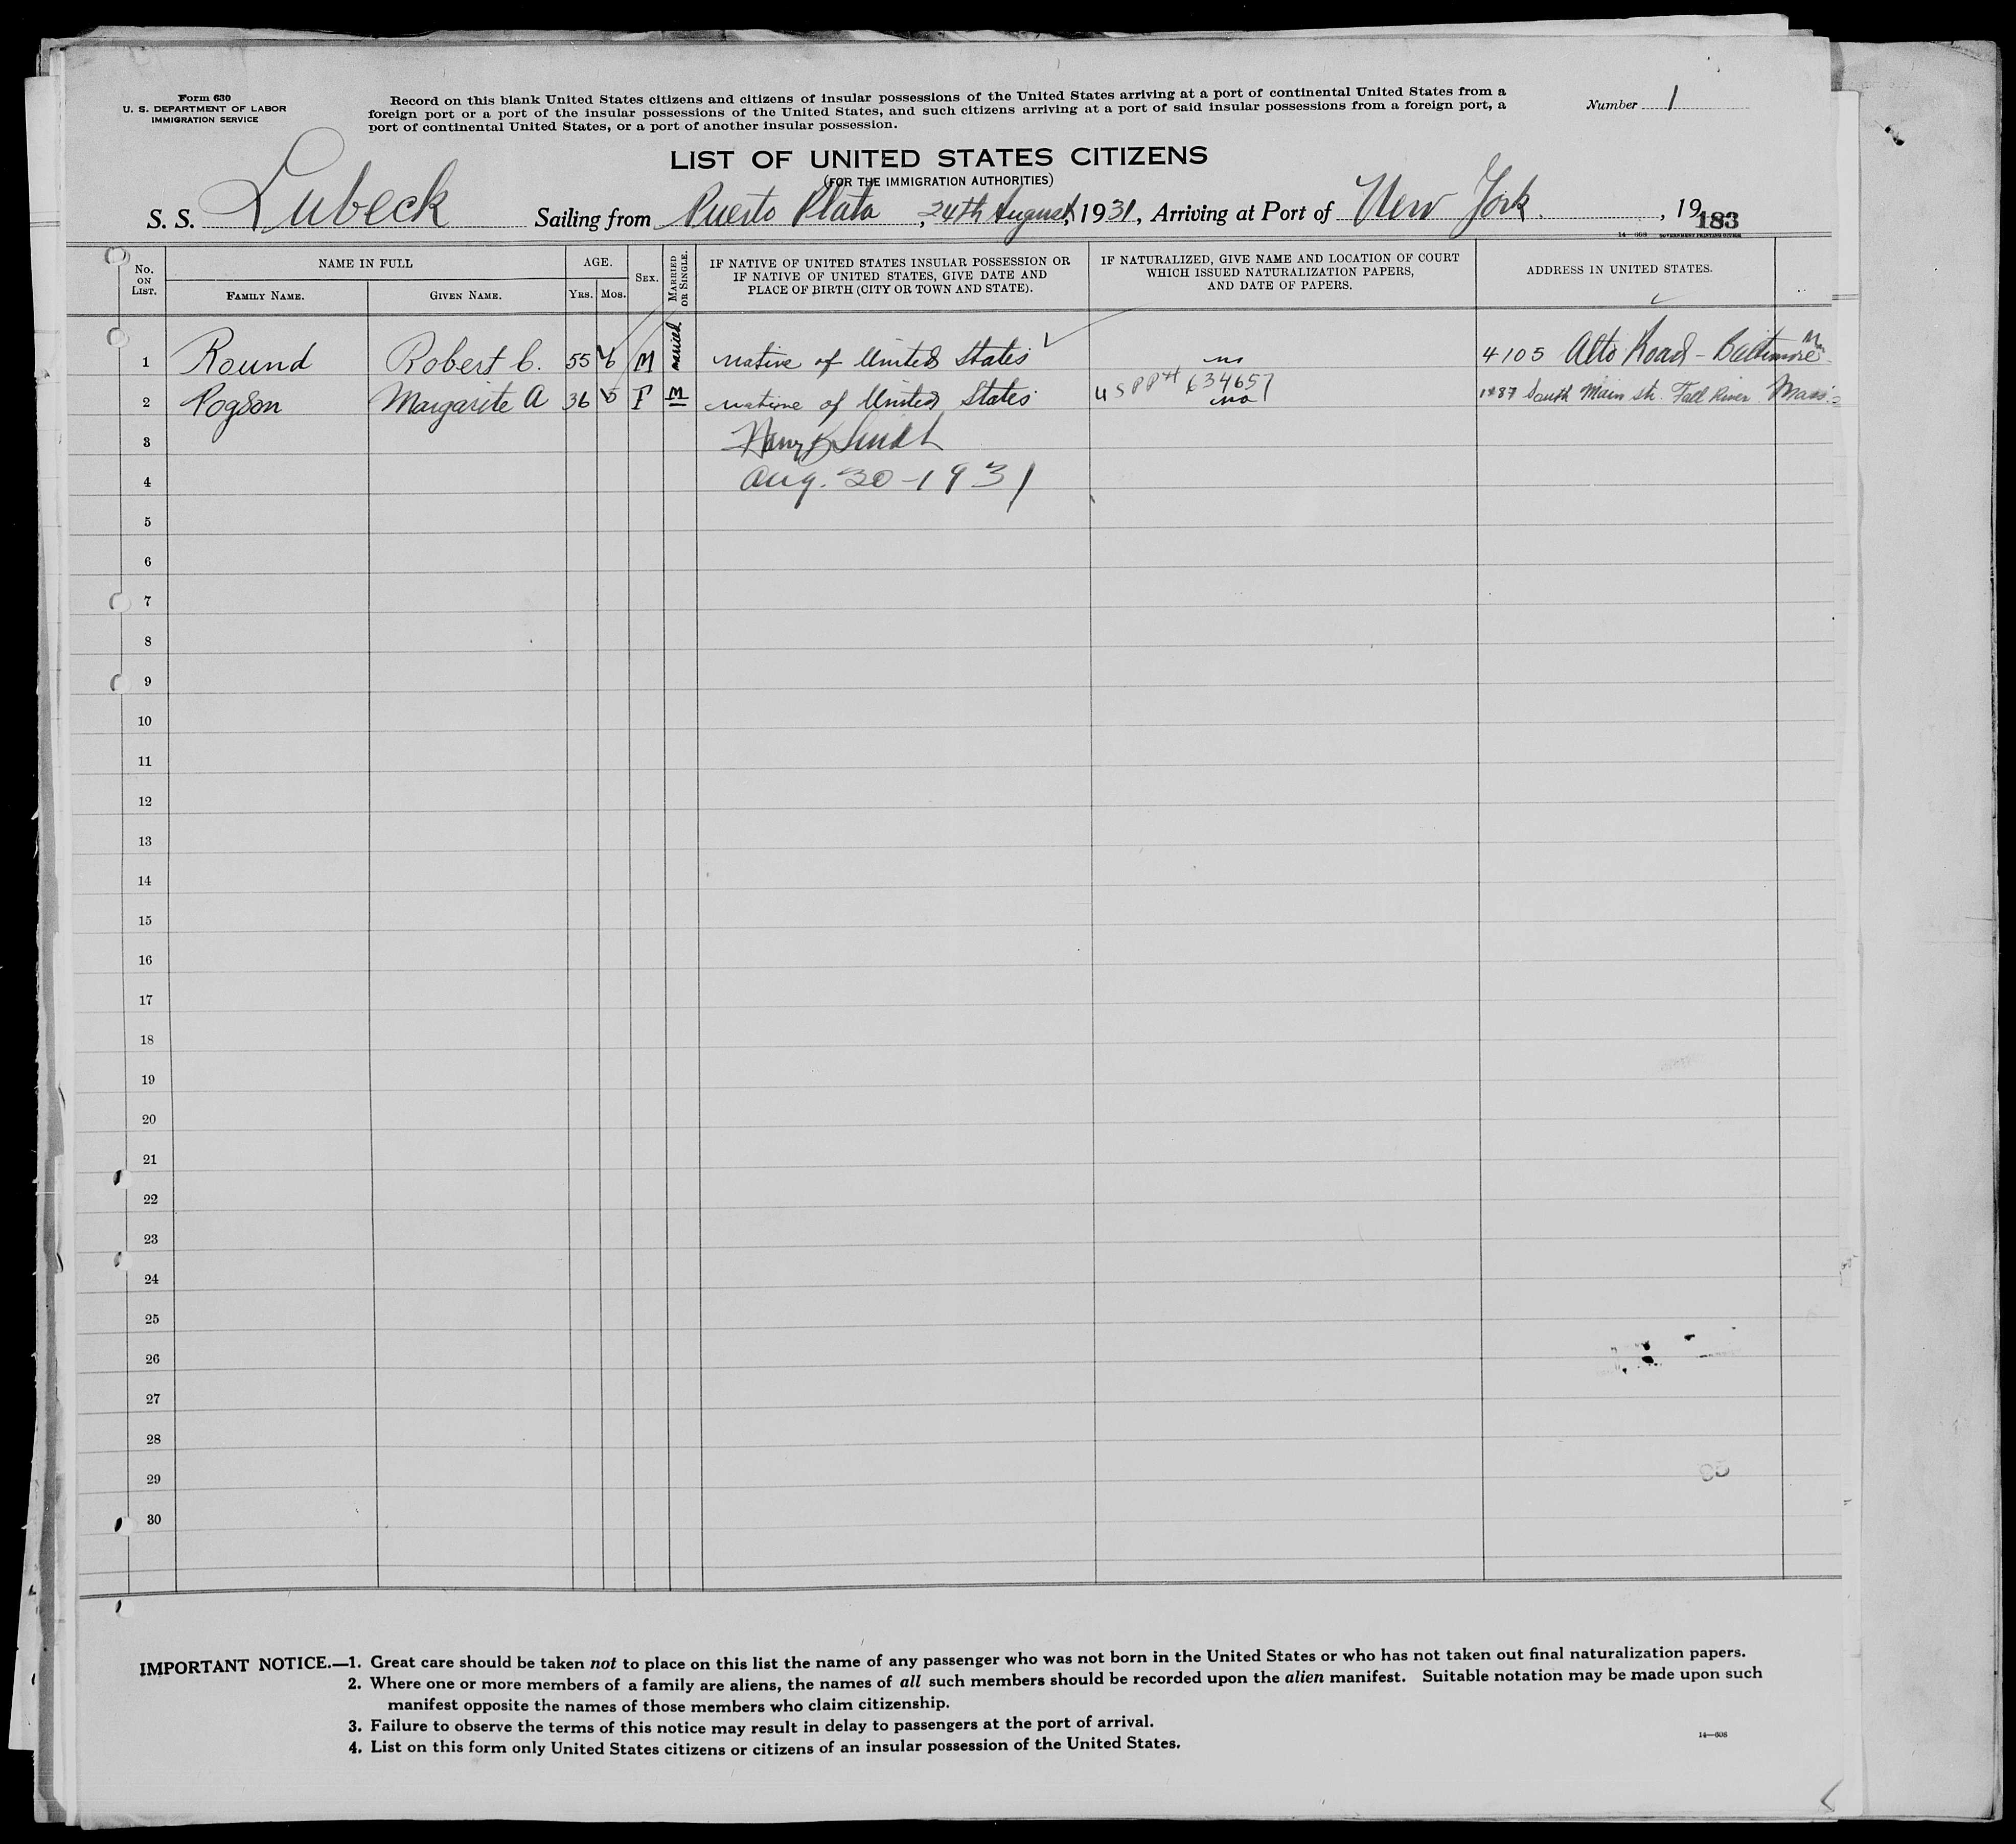 Form 630
U. S. DEPARTMENT OF LABOR
IMMIGRATION SERVICE
Record on this blank United States citizens and citizens of insular possessions of the United States arriving at a port of continental United States from a
foreign port or a port of the insular possessions of the United States, and such citizens arriving at a port of said insular possessions from a foreign port, a
port of continental United States, or a port of another insular possession.
Number 1
LIST OF UNITED STATES CITIZENS
(FOR THE IMMIGRATION AUTHORITIES)
S. S. Lubeck Sailing from Puerto Plata, 24th August, 1931, Arriving at Port of New York., 19
183
No. ON LIST.
NAME IN FULL
FAMILY NAME.
GIVEN NAME.
AGE.
YRS. MOS.
SEX.
MARRIED OR SINGLE.
IF NATIVE OF UNITED STATES INSULAR POSSESSION OR
IF NATIVE OF UNITED STATES, GIVE DATE AND
PLACE OF BIRTH (CITY OR TOWN AND STATE).
IF NATURALIZED, GIVE NAME AND LOCATION OF COURT
WHICH ISSUED NATURALIZATION PAPERS,
AND DATE OF PAPERS.
ADDRESS IN UNITED STATES.
1 Round Robert C. 55 6 M married native of United States no 4105 Alto Road - Baltimore
2 Pogson Margarite A 36 5 F M native of United States USPP# 634657 no South Main St. Fall River Mass.
3
4 Aug. 30-1931
5
6
7
8
9
10
11
12
13
14
15
16
17
18
19
20
21
22
23
24
25
26
27
28
29
30
IMPORTANT NOTICE.—1. Great care should be taken not to place on this list the name of any passenger who was not born in the United States or who has not taken out final naturalization papers.
2. Where one or more members of a family are aliens, the names of all such members should be recorded upon the alien manifest. Suitable notation may be made upon such
manifest opposite the names of those members who claim citizenship.
3. Failure to observe the terms of this notice may result in delay to passengers at the port of arrival.
4. List on this form only United States citizens or citizens of an insular possession of the United States.
14—608